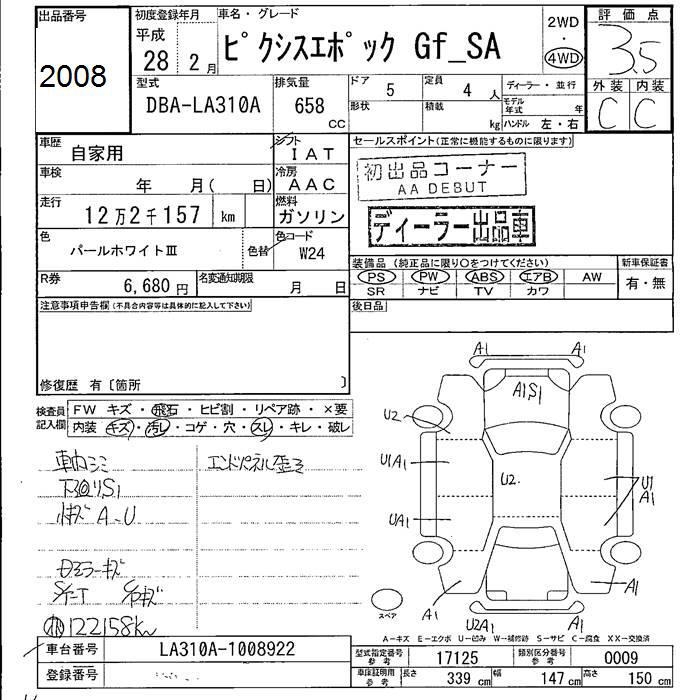 出品番号
2008
初度登録年月
平成
28年 2月
車名・グレード
ピクシスエポック Gf_SA
2WD
・
4WD
評価点
3.5
外装 内装
C C
型式
DBA-LA310A
排気量
658
CC
ドア 5
定員 4人
ディーラー・並行
形状
積載
kg
モデル年式 年
ハンドル 左・右
車歴
自家用
シフト
IAT
車検
年 月( 日)
冷房
AAC
走行
12万2千157 km
燃料
ガソリン
色
パールホワイトⅢ
色替
色コード
W24
R券
6,680円
名変通知期限
月 日
セールスポイント(正常に機能するものに限ります)
初出品コーナー
AA DEBUT
ディーラー出品車
装備品(純正品に限り○をつけてください)
新車保証書
PS PW ABS エアB AW
SR ナビ TV カワ
有・無
後日品
注意事項申告欄(不具合内容等は具体的に記入して下さい)
修復歴 有〔箇所 〕
検査員記入欄
FW キズ・飛石・ヒビ割・リペア跡・×要
内装 キズ・汚レ・コゲ・穴・スレ・キレ・破レ
車内ゴミ
エンドパネル歪ミ
下廻りS1
小キズ A、U
122158km
A1 A1
A1S1
U2
U1A1
U2.
U1
A1
UA1
A1
A1
U2A1
A1
スペア
A-キズ E-エクボ U-凹み W-補修跡 S-サビ C-腐食 XX-交換済
車台番号
LA310A-1008922
登録番号
型式指定番号
参考
17125
類別区分番号
参考
0009
車庫証明用
参考
長さ 339 cm
幅 147 cm
高さ 150 cm